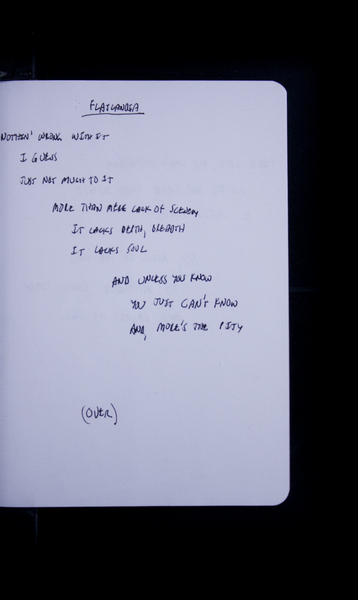 FLATLANDIA
NOTHIN' WRONG WITH IT
I GUESS
JUST NOT MUCH TO IT
MORE THAN MERE LACK OF SCENERY
IT LACKS DEPTH, BREADTH
IT LACKS SOUL
AND UNLESS YOU KNOW
YOU JUST CAN'T KNOW
AND, MORE'S THE PITY
(OVER)